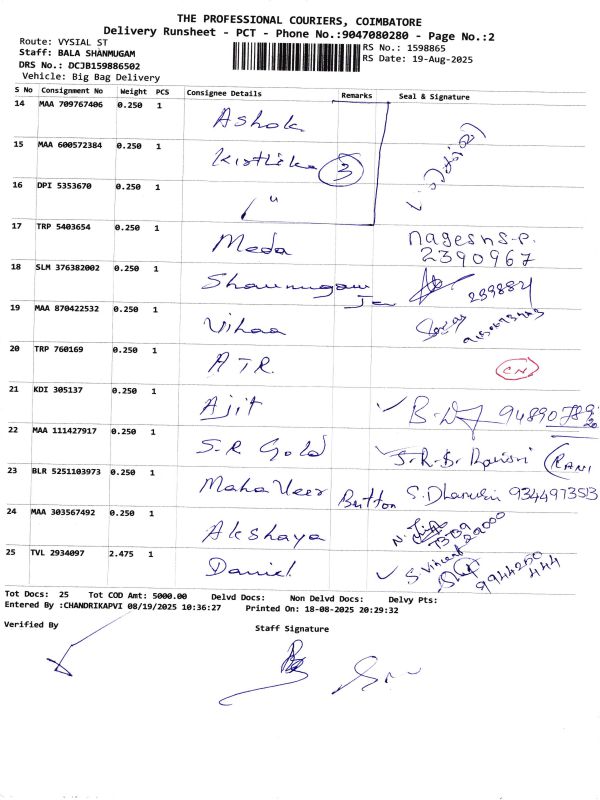 THE PROFESSIONAL COURIERS, COIMBATORE
Delivery Runsheet - PCT - Phone No.:9047080280 - Page No.:2
Route: VYSIAL ST
RS No.: 1598865
Staff: BALA SHANMUGAM
RS Date: 19-Aug-2025
DRS No.: DCJB159886502
Vehicle: Big Bag Delivery
S No Consignment No Weight PCS Consignee Details Remarks Seal & Signature
14 MAA 709767406 0.250 1 Ashok
15 MAA 600572384 0.250 1 3
16 DPI 5353670 0.250 1 "
17 TRP 5403654 0.250 1 Meda nagesh S.P.
2390967
18 SLM 376382002 0.250 1 Shanmugam
19 MAA 870422532 0.250 1 Vihaa
20 TRP 760169 0.250 1 ATR. CN
21 KDI 305137 0.250 1 Ajit
22 MAA 111427917 0.250 1 S.R Gold (RANI
23 BLR 5251103973 0.250 1 Mahaveer Button S. Dharushi 9344973513
24 MAA 303567492 0.250 1 Akshaya
25 TVL 2934097 2.475 1 Daniel S Vincent
9944250
444
Tot Docs: 25 Tot COD Amt: 5000.00 Delvd Docs: Non Delvd Docs: Delvy Pts:
Entered By :CHANDRIKAPVI 08/19/2025 10:36:27 Printed On: 18-08-2025 20:29:32
Verified By Staff Signature